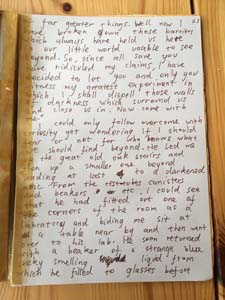 far greater things. Well now I
have broken down those barriers
which always have held us here
our little world unable to see
beyond. So, since all save you
have ridiculed my claims, I have
decided to let you and only you
witness my greatest experiment in
which, I shall dispell those walls
of darkness which surround us
close us in. Now come with
me"
could only follow overcome with
curiosity yet wondering if I should
not for who knows what
we should find beyond. He led me
the great old oak stairs and
then up a smaller one
ending at last to a darkened
From the canisters
and beakers I could see
that he had fitted out one of
the corners of the room as a
laboratory and biding me sit at
a table near by and then went
over to his lab. He soon returned
with a beaker of a strange blue
smelling liquid from
which he filled to glasses before